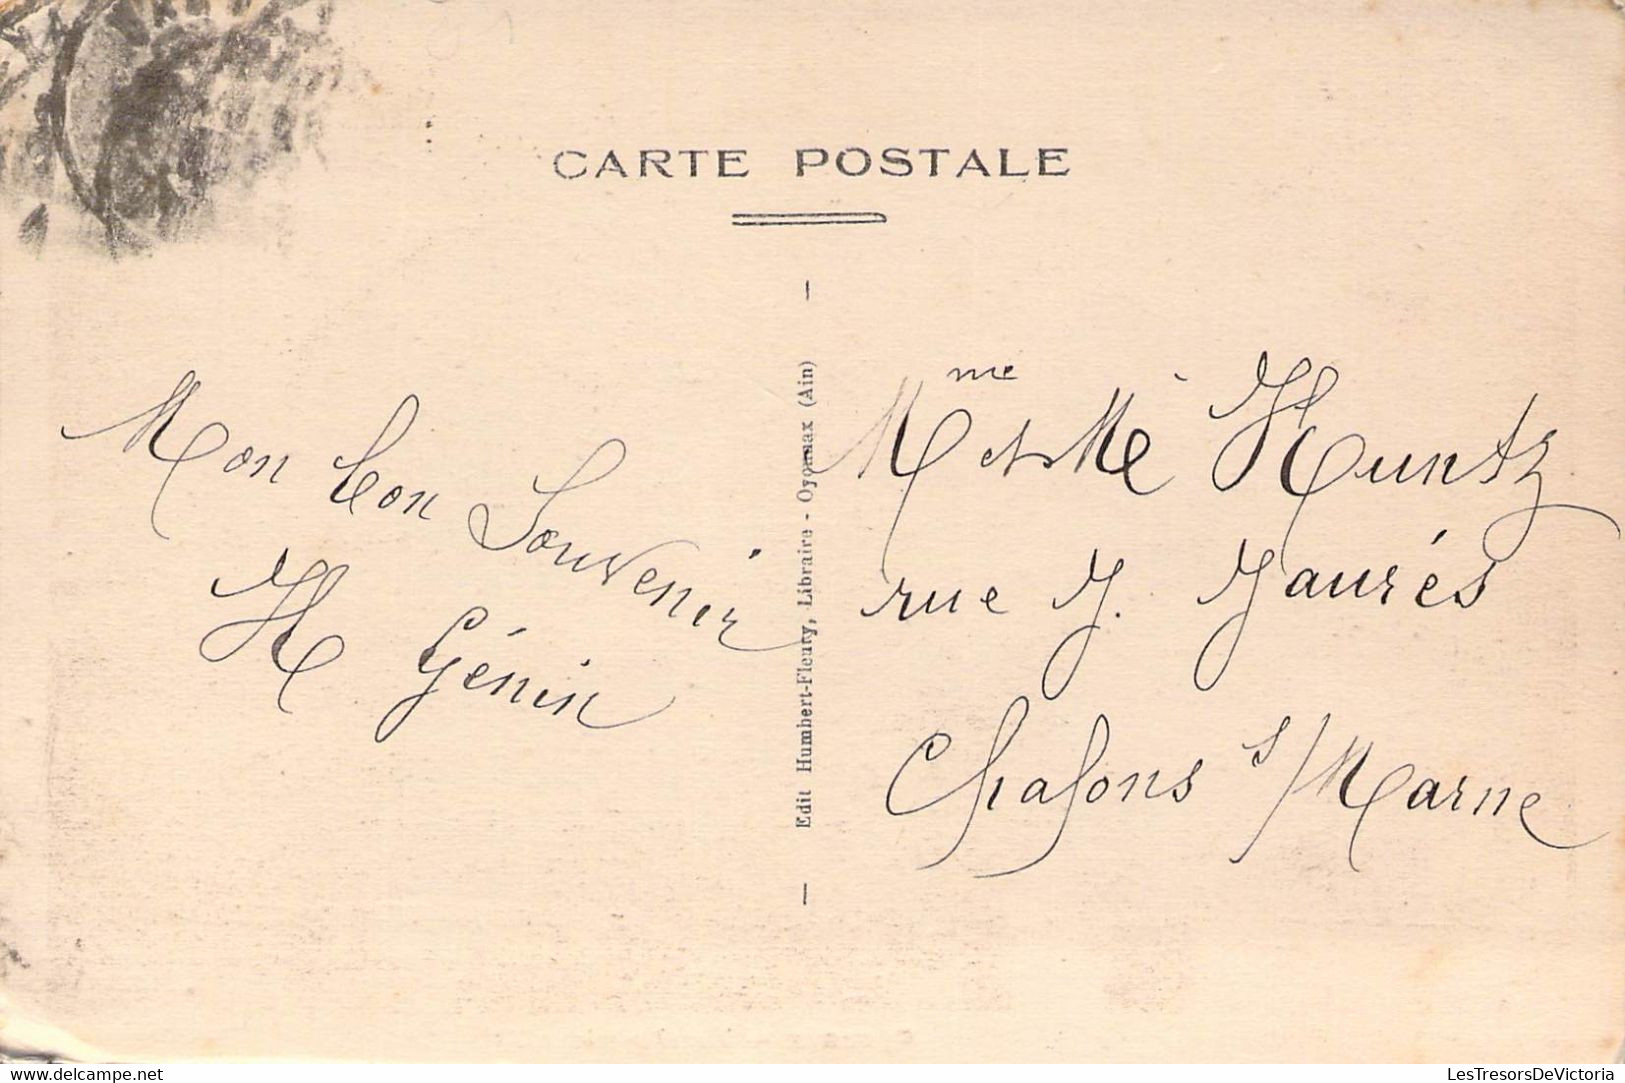 CARTE POSTALE
Mon bon Souvenir
H Génin
Edit Humbert-Fleury, Libraire - Oyonnax (Ain)
Mme et Mr Huntz
rue J. Jaurés
Chalons s/Marne
LesTresorsDeVictoria
www.delcampe.net